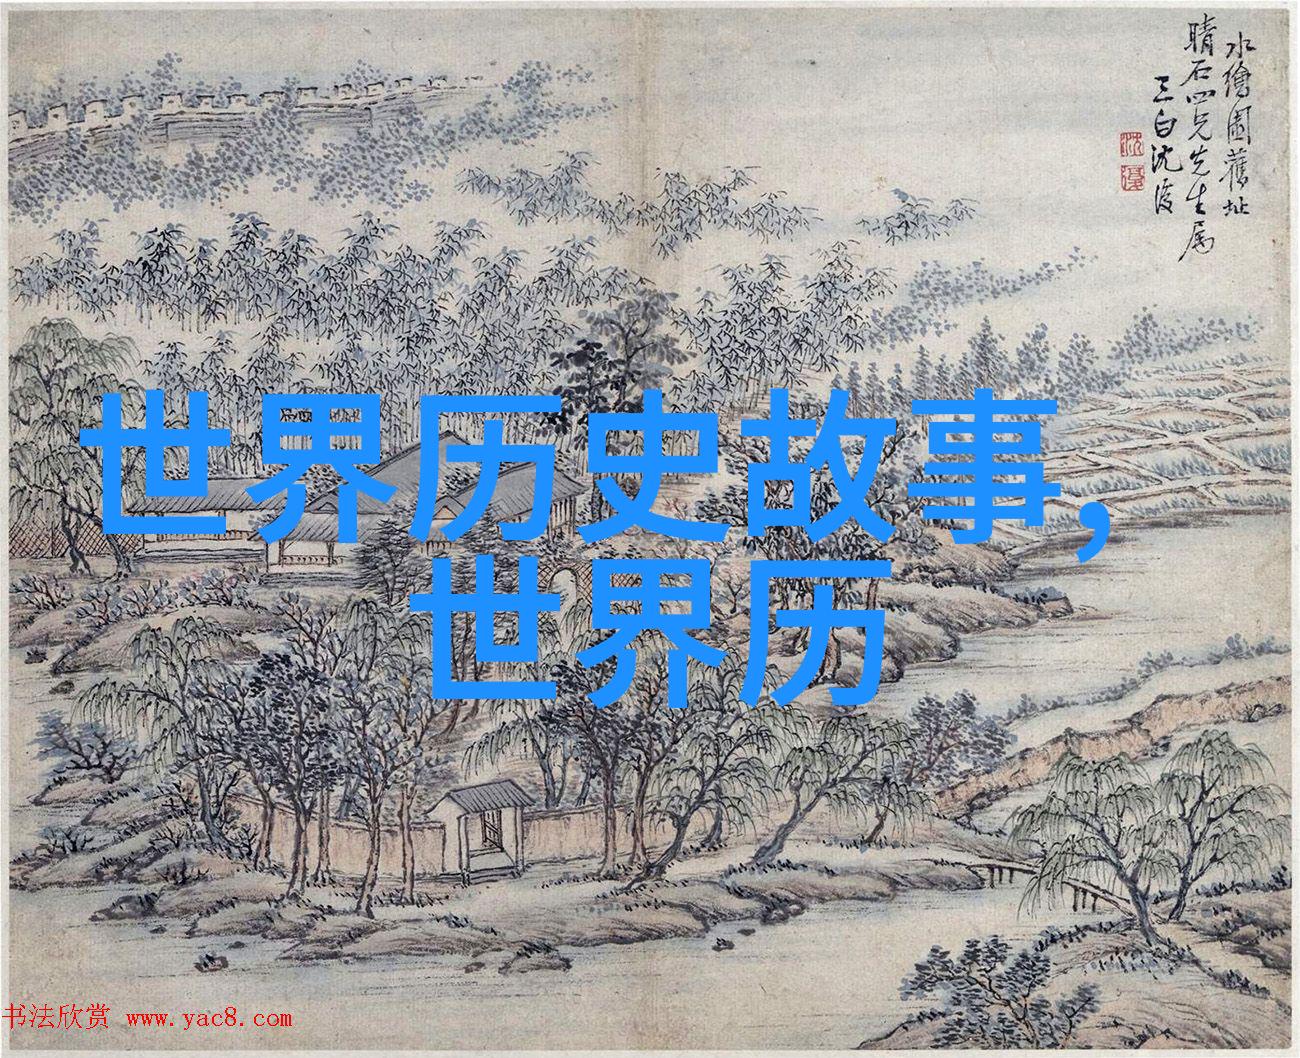 水繪園舊址
晴石四兄先生属
三白沈復
沈
復
世界历史故事,
世界历
书法欣赏 www.yac8.com